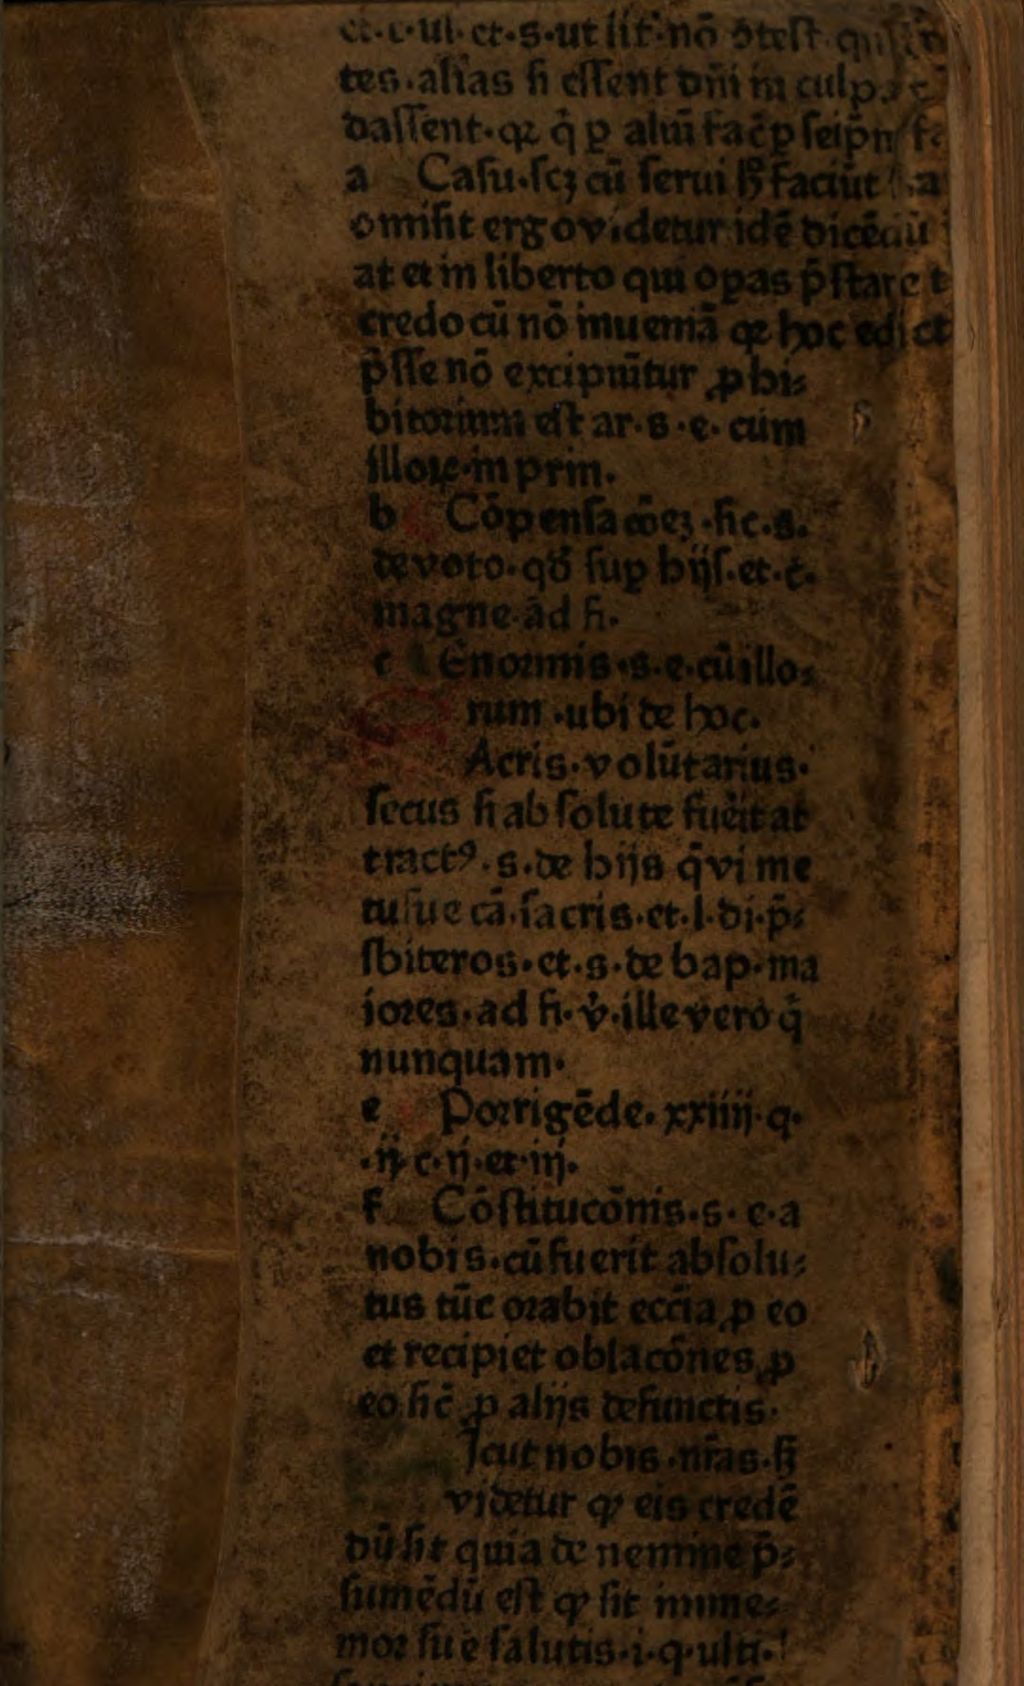 ct.c.ul.et.s.ut lit̄.nō ꝺteſt
tes.alias ſi eſſent dn̄i in culp
daſſent.qꝛ q̄ ꝑ aliū fac̄ ꝑ ſeip̄
a Caſu.ſcꝫ cū ſerui hͦ faciūt
omiſit ergo videtur idē dicēdū
at et in liberto qui oꝑas p̄ſtare t
credo cū nō inueniā qꝛ hoc edict
p̄ſſe nō excipiūtur ꝓhi⸗
bitorium eſt ar.s.e.cum
illoꝝ.in prin.
b Cōpenſacōeꝫ.ſic.s.
de voto.qđ ſuꝑ hijſ.et.c.
magne.ad fi.
c Enormis.s.e.cū illo⸗
rum.ubi de hoc.
Actis.volūtarius.
ſecus ſi abſolute fue͛it at
tractꝰ.s.de hijs q̄ vi me
tuſue cā.ſacris.et.l.di.p̄⸗
ſbiteros.et.s.de bap.ma
iores.ad fi.v̓.ille vero q̄
nunquam.
e Porrigēde.xxiiij.q.
.ij.c.ij.et.iij.
f Cōſtitucōnis.s.e.a
nobis.cū fuerit abſolu⸗
tus tūc orabit ecc̄ia ꝓ eo
et recipiet oblacōnes ꝓ
eo ſic̄ ꝓ alijs defunctis.
Icut nobis.nr̄as.ſꝫ
videtur ꝙ eis credē
dū ſit quia de nemine p̄⸗
ſumēdū eſt ꝙ ſit imme⸗
mor ſue ſalutis.i.q.ulti.